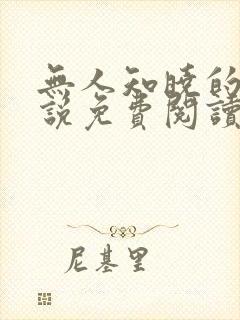 無人知曉的
說免費閱讀
尼基里